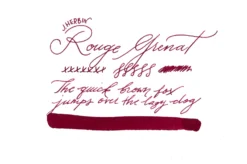 J. HERBIN
Rouge Grenat
xxxxxxx §§§§§
The quick brown fox
jumps over the lazy dog